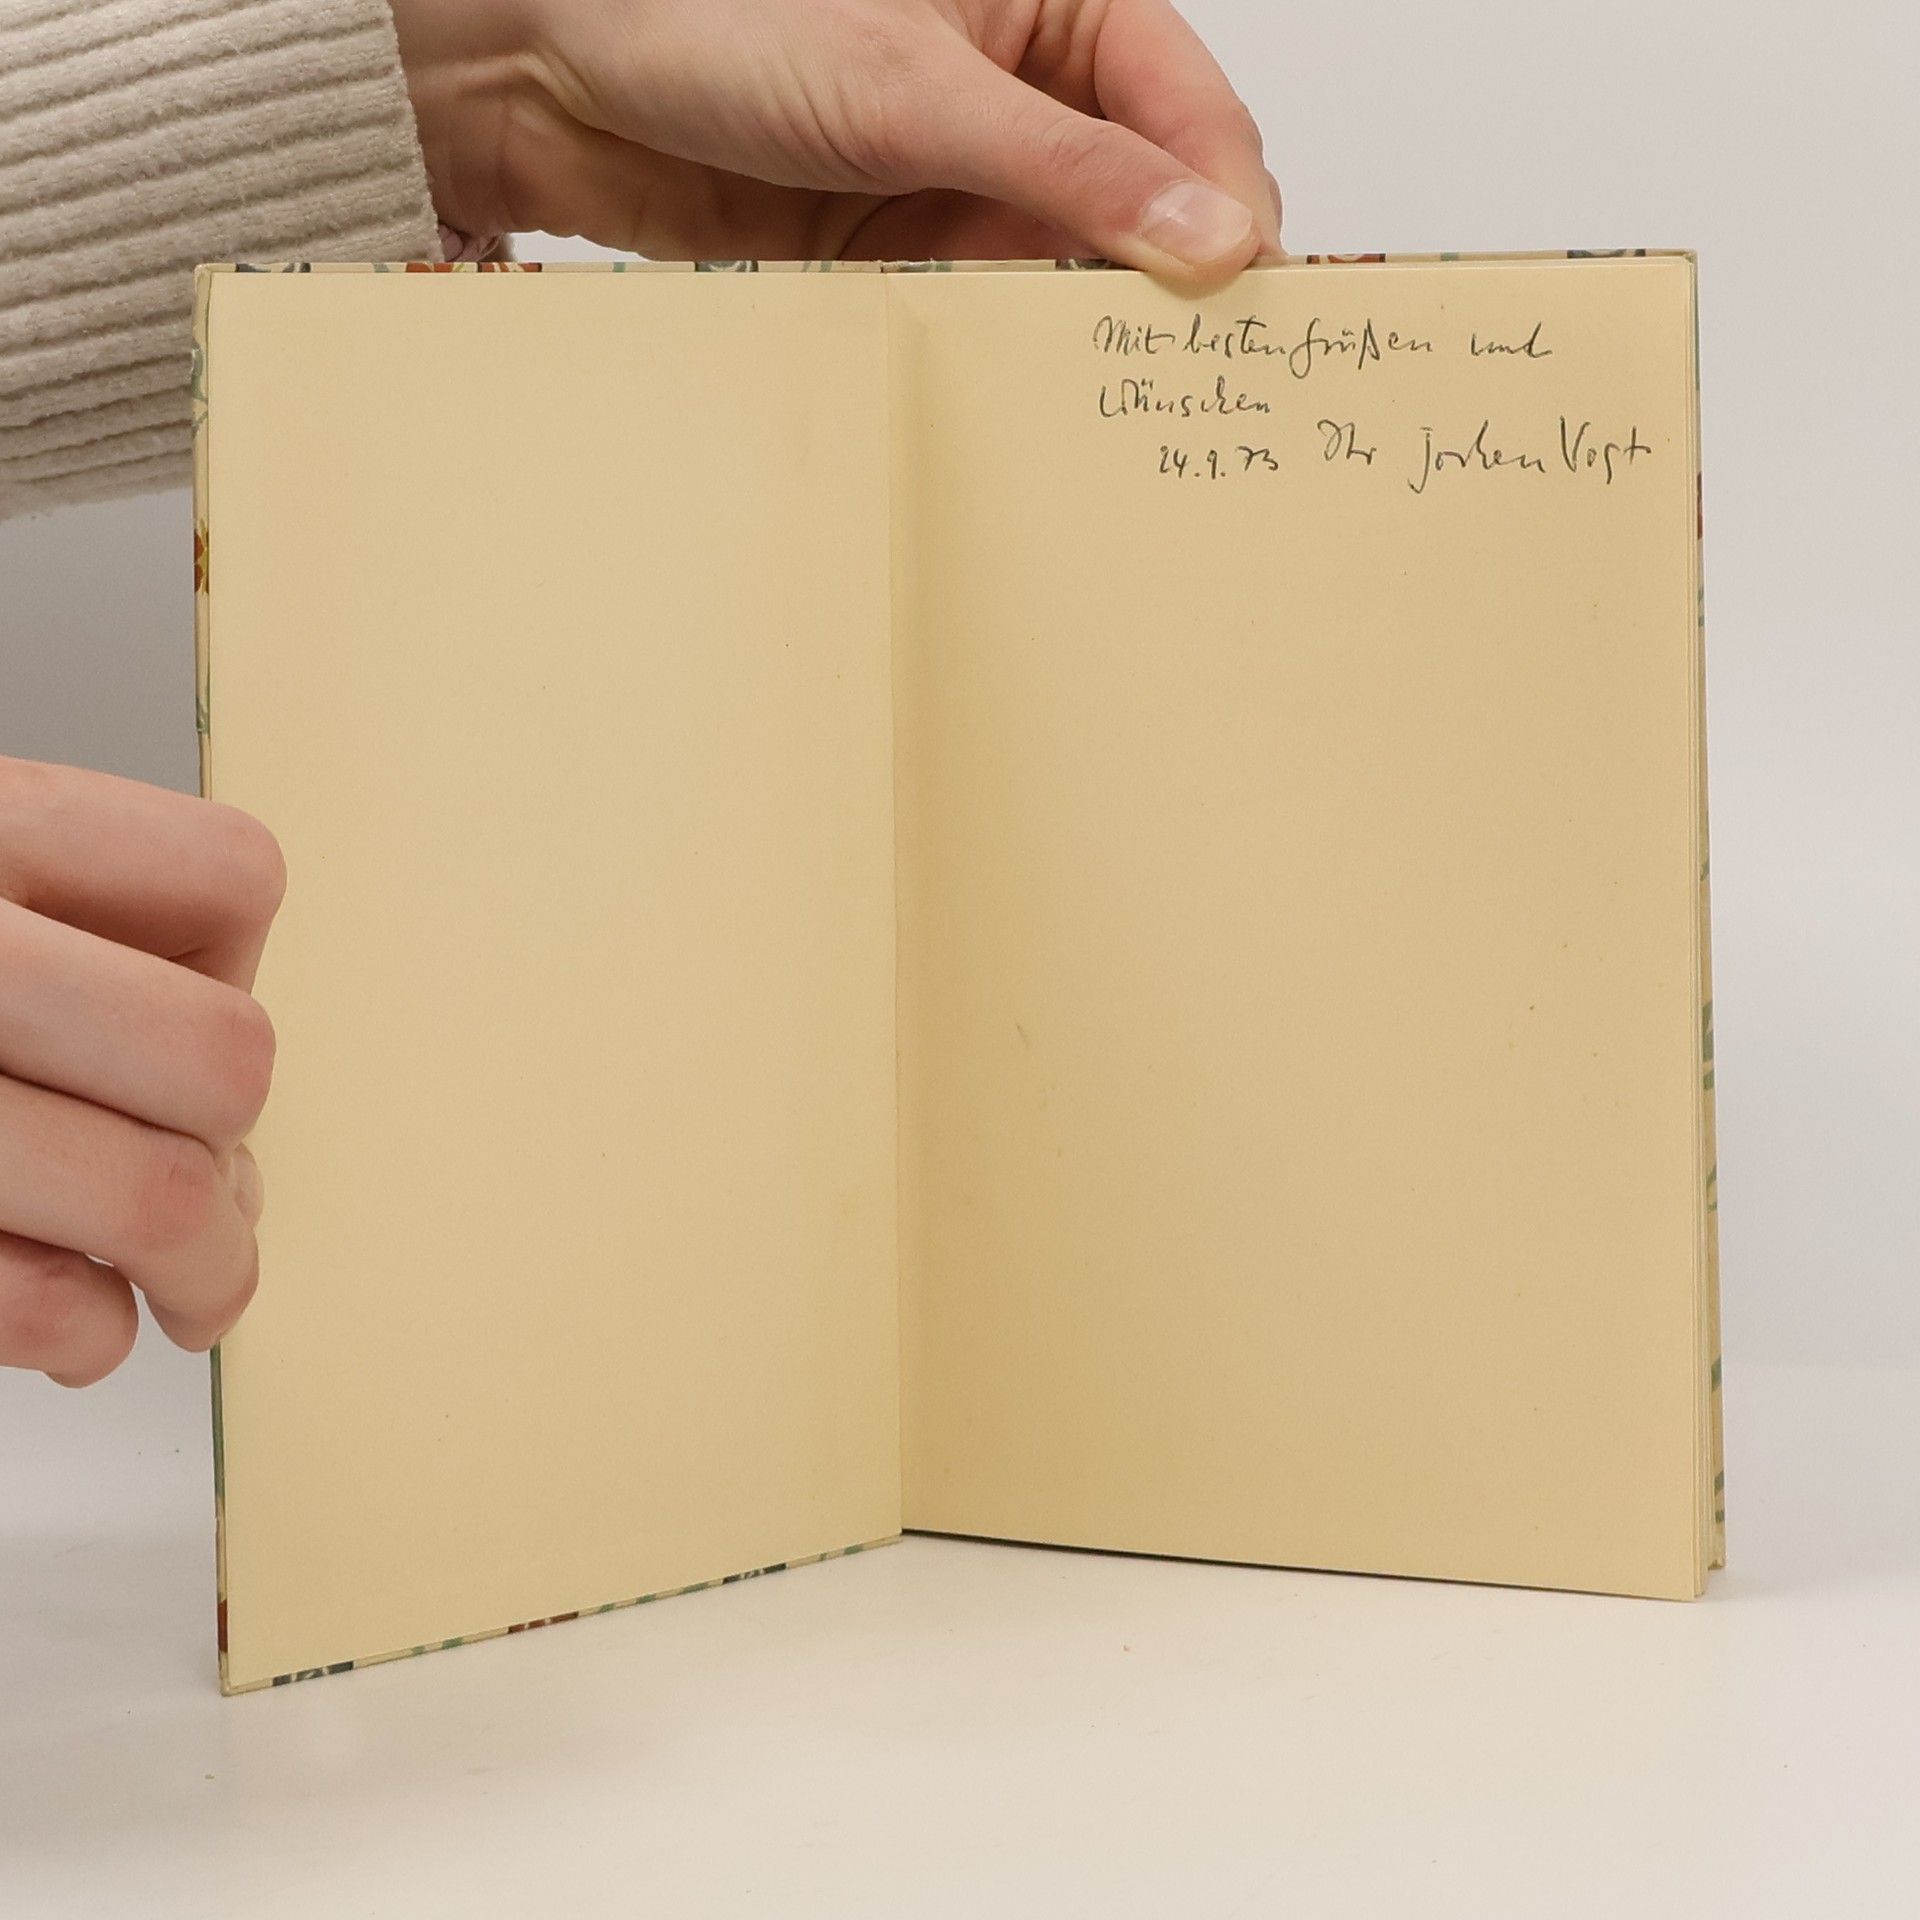 Mit besten Grüßen und
Wünschen
24.9.73 Ihr Jochen Vogt